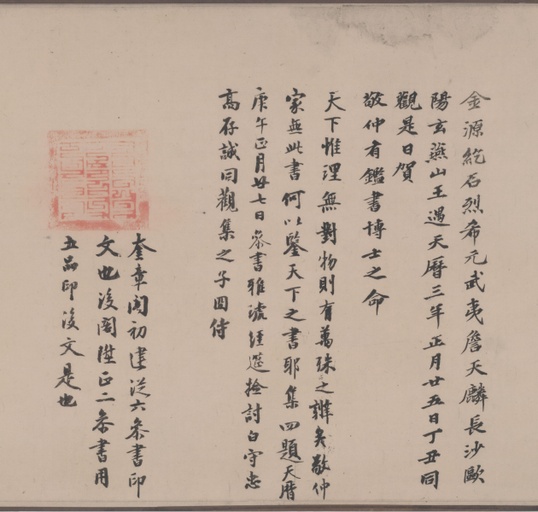 金源紇石烈希元武夷詹天麟長沙歐
陽玄燕山王遇天曆三年正月廿五日丁丑同
觀是日賀
敬仲有鑑書博士之命
天下惟理無對物則有萬殊之辨矣敬仲
家無此書何以鑒天下之書耶集四題天曆
庚午正月廿七日參書雅琥經筵檢討白守忠
高存誠同觀集之子因侍
奎章閣初建從六參書印
文也後閣陞正二參書用
五品印後文是也